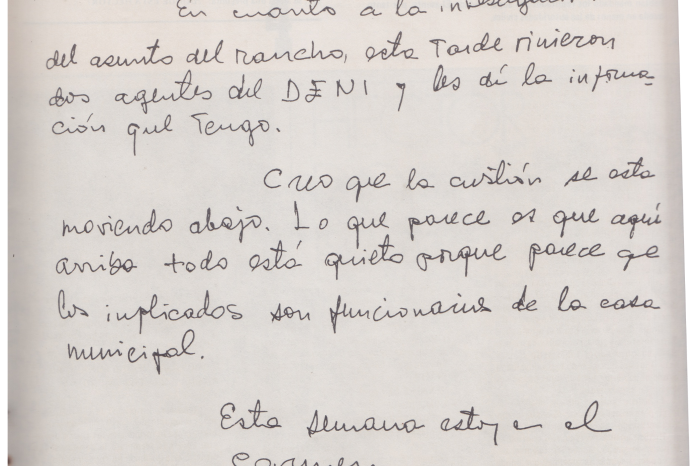 En cuanto a la investigación
del asunto del rancho, esta Tarde vinieron
dos agentes del DENI y les dí la informa-
ción que Tengo.
Creo que la custión se esta
moviendo abajo. Lo que parece es que aquí
arriba todo está quieto porque parece qe
los inplicados son funcionarios de la casa
municipal.
Esta semana estoy en el